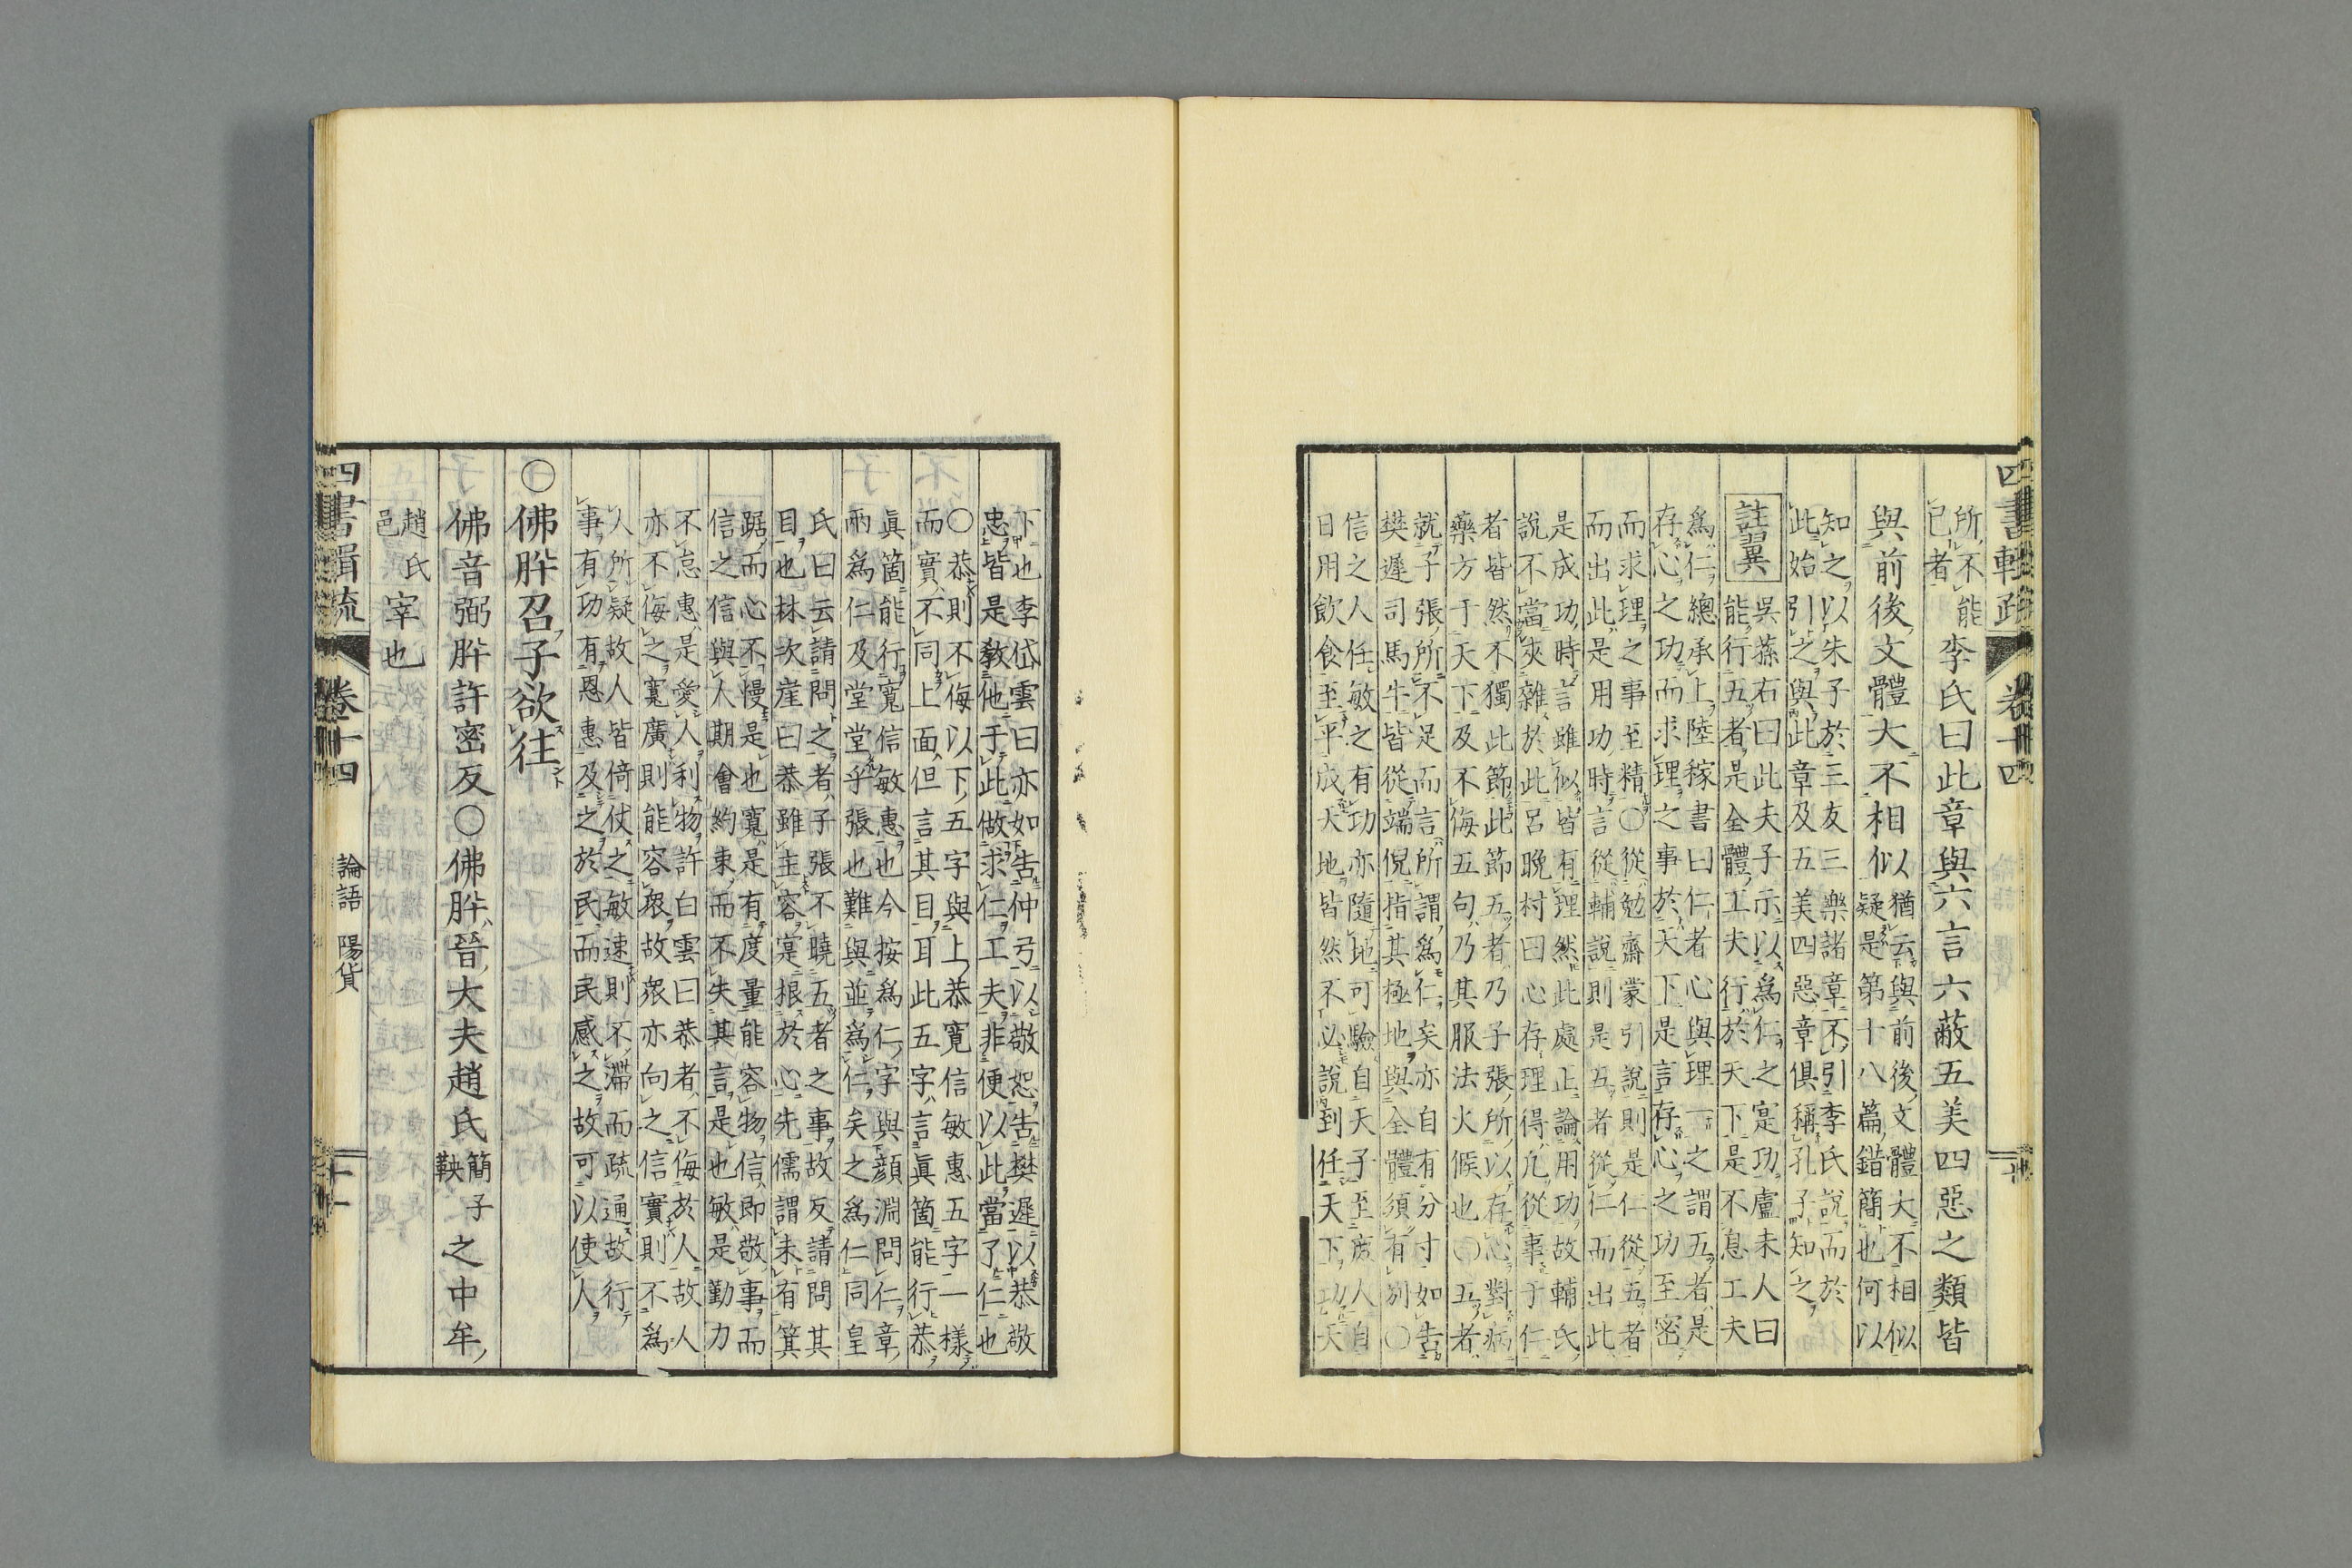 四書輯疏 卷十四
所不能
已者
李氏曰此章與六言六蔽五美四惡之類皆
與前後文體大不相似
猶云與前後文體大不相似
疑是第十八篇錯簡也何以
知之以朱子於三友三樂諸章不引李氏說而於
此始引之與此章及五美四惡章俱稱孔子知之
註翼
吳蓀右曰此夫子示以爲仁之寔功盧未人曰
能行五者是全體工夫行於天下是不息工夫
爲仁總承上陸稼書曰仁者心與理一之謂五者是
存心之功而求理之事於天下是言存心之功至密
而求理之事至精〇從勉齋蒙引說則是仁從五者
而出此是用功時言從輔說則是五者從仁而出此
是成功時言雖似皆有理然此處正論用功故輔氏
說不當夾雜於此呂晚村曰心存理得凡從事于仁
者皆然不獨此節此節五者乃子張所以存心對病
藥方于天下及不侮五句乃其服法火候也〇五者
就子張所不足而言所謂爲仁矣亦自有分寸如告
樊遲司馬牛皆從端倪指其極地與全體須有別〇
信之人任敏之有功亦隨地可驗自天子至庶人自
日用飲食至平成天地皆然不必說到任天下功天
下也李岱雲曰亦如告仲弓以敬恕告樊遲以恭敬
忠皆是敎他于此做求仁工夫非便以此當了仁也
〇恭則不侮以下五字與上恭寬信敏惠五字一樣
而實不同上面但言其目耳此五字言眞箇能行恭
眞箇能行寬信敏惠也今按爲仁字與顔淵問仁章
兩爲仁及堂堂乎張也難與並爲仁矣之爲仁同皇
氏曰云請問之者子張不曉五者之事故反請問其
目也林次崖曰恭雖主容寔根於心先儒謂未有箕
踞而心不慢是也寬是有度量能容物信卽敬事而
信之信與人期會約束而不失其言是也敏是勤力
不怠惠是愛人利物許白雲曰恭者不侮於人故人
亦不侮之寬廣則能容衆故衆亦向之信實則不爲
人所疑故人皆倚仗之敏速則不滯而疏通故行
事有功有恩惠及之於民而民感之故可以使人
〇佛肸召子欲往
佛音弼肸許密反〇佛肸晉大夫趙氏
簡子
鞅
之中牟
趙氏
邑
宰也
四書輯疏 卷十四 論語 陽貨 十一